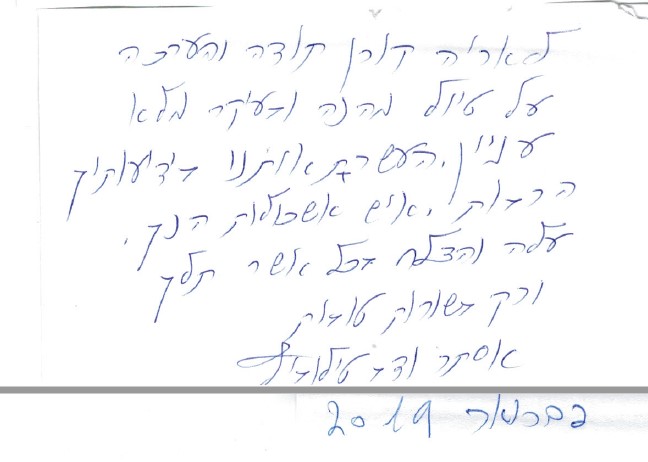 לאריה קורן תודה והערכה
על טיול מהנה ובעיקר מלא
עניין. העשרת אותנו בידיעותיך
הרבות. איש אשכולות הנך.
עלה והצלח בכל אשר תלך
ורק בשורות טובות
אסתר ודב
פברואר 2019